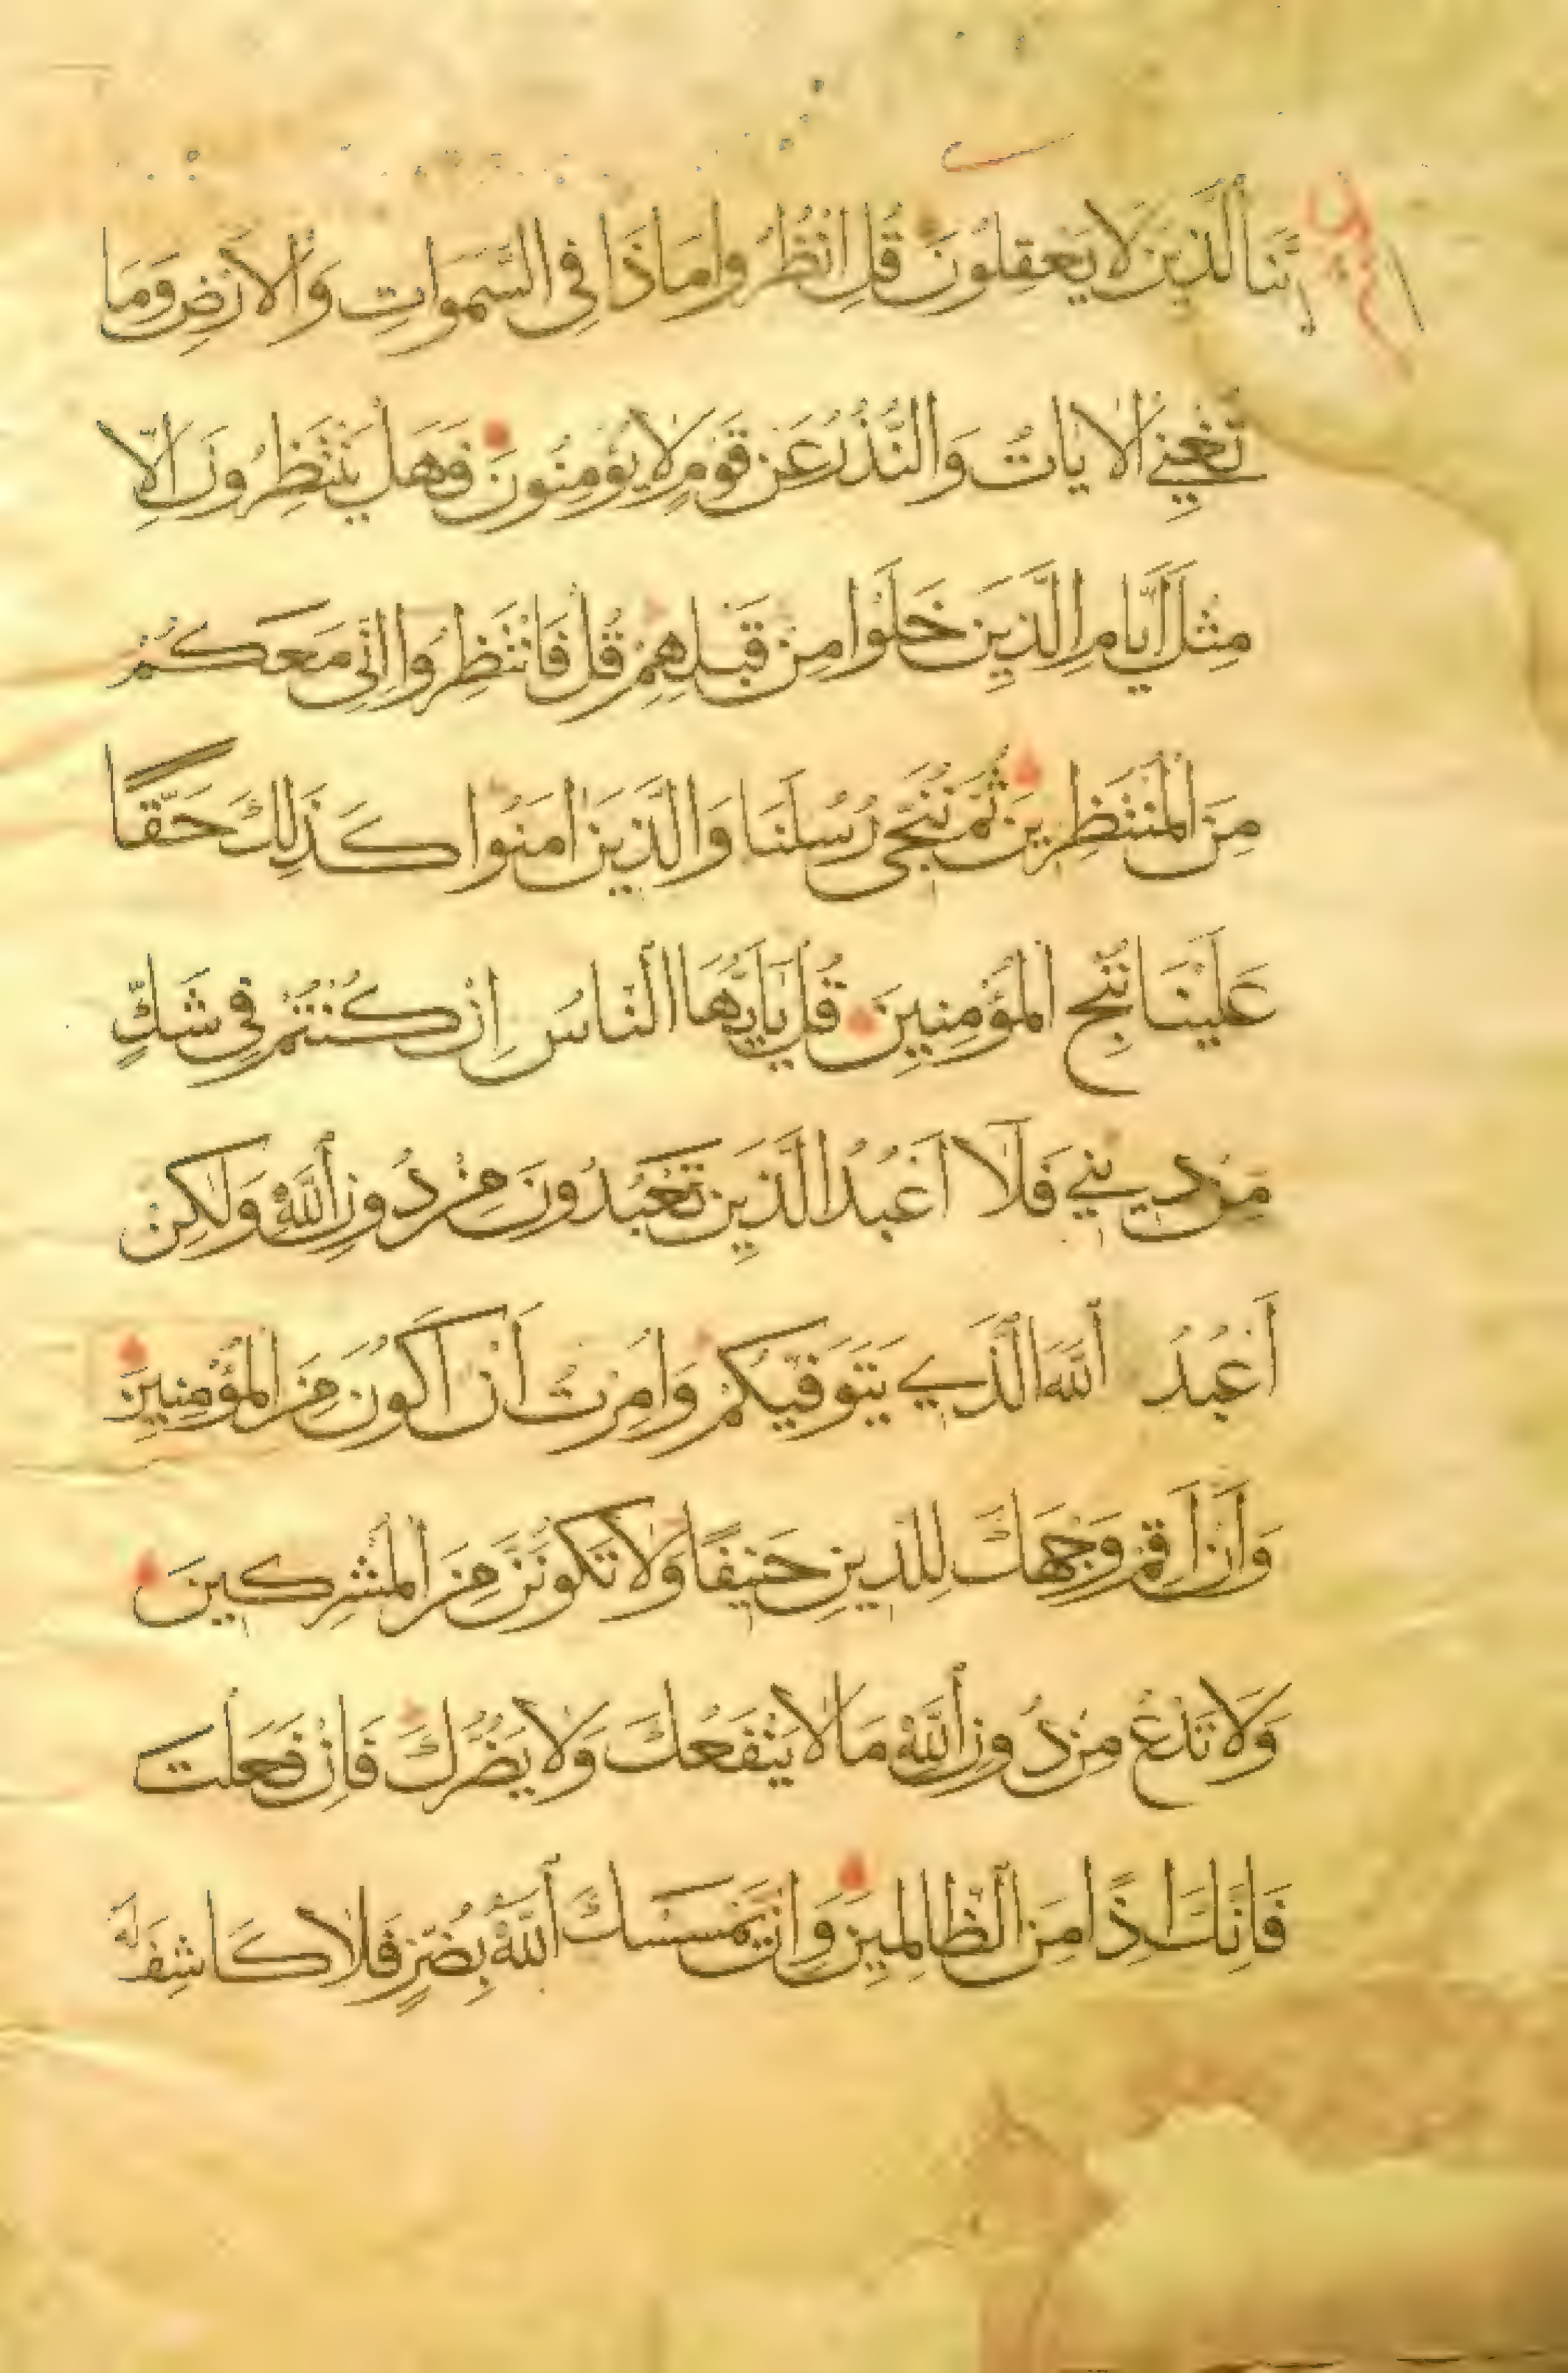 نَنَا الَّذِينَ لَا يَعْقِلُونَ قُلِ انْظُرُوا مَاذَا فِي السَّمَوَاتِ وَالْاَرْضِ وَمَا
تُغْنِي الْاٰيَاتُ وَالنُّذُرُ عَنْ قَوْمٍ لَا يُؤْمِنُونَ فَهَلْ يَنْتَظِرُونَ اِلَّا
مِثْلَ اَيَّامِ الَّذِينَ خَلَوْا مِنْ قَبْلِهِمْ قُلْ فَانْتَظِرُوا اِنِّي مَعَكُمْ
مِنَ الْمُنْتَظِرِينَ ثُمَّ نُنَجِّى رُسُلَنَا وَالَّذِينَ اٰمَنُوا كَذٰلِكَ حَقًّا
عَلَيْنَا نُنْجِ الْمُؤْمِنِينَ قُلْ يَا اَيُّهَا النَّاسُ اِنْ كُنْتُمْ فِي شَكٍّ
مِنْ دِينِي فَلَا اَعْبُدُ الَّذِينَ تَعْبُدُونَ مِنْ دُونِ اللّٰهِ وَلٰكِنْ
اَعْبُدُ اللّٰهَ الَّذِي يَتَوَفّٰيكُمْ وَاُمِرْتُ اَنْ اَكُونَ مِنَ الْمُؤْمِنِينَ
وَاَنْ اَقِمْ وَجْهَكَ لِلدِّينِ حَنِيفًا وَلَا تَكُونَنَّ مِنَ الْمُشْرِكِينَ
وَلَا تَدْعُ مِنْ دُونِ اللّٰهِ مَا لَا يَنْفَعُكَ وَلَا يَضُرُّكَ فَاِنْ فَعَلْتَ
فَاِنَّكَ اِذًا مِنَ الظَّالِمِينَ وَاِنْ يَمْسَسْكَ اللّٰهُ بِضُرٍّ فَلَا كَاشِفَ لَهُ